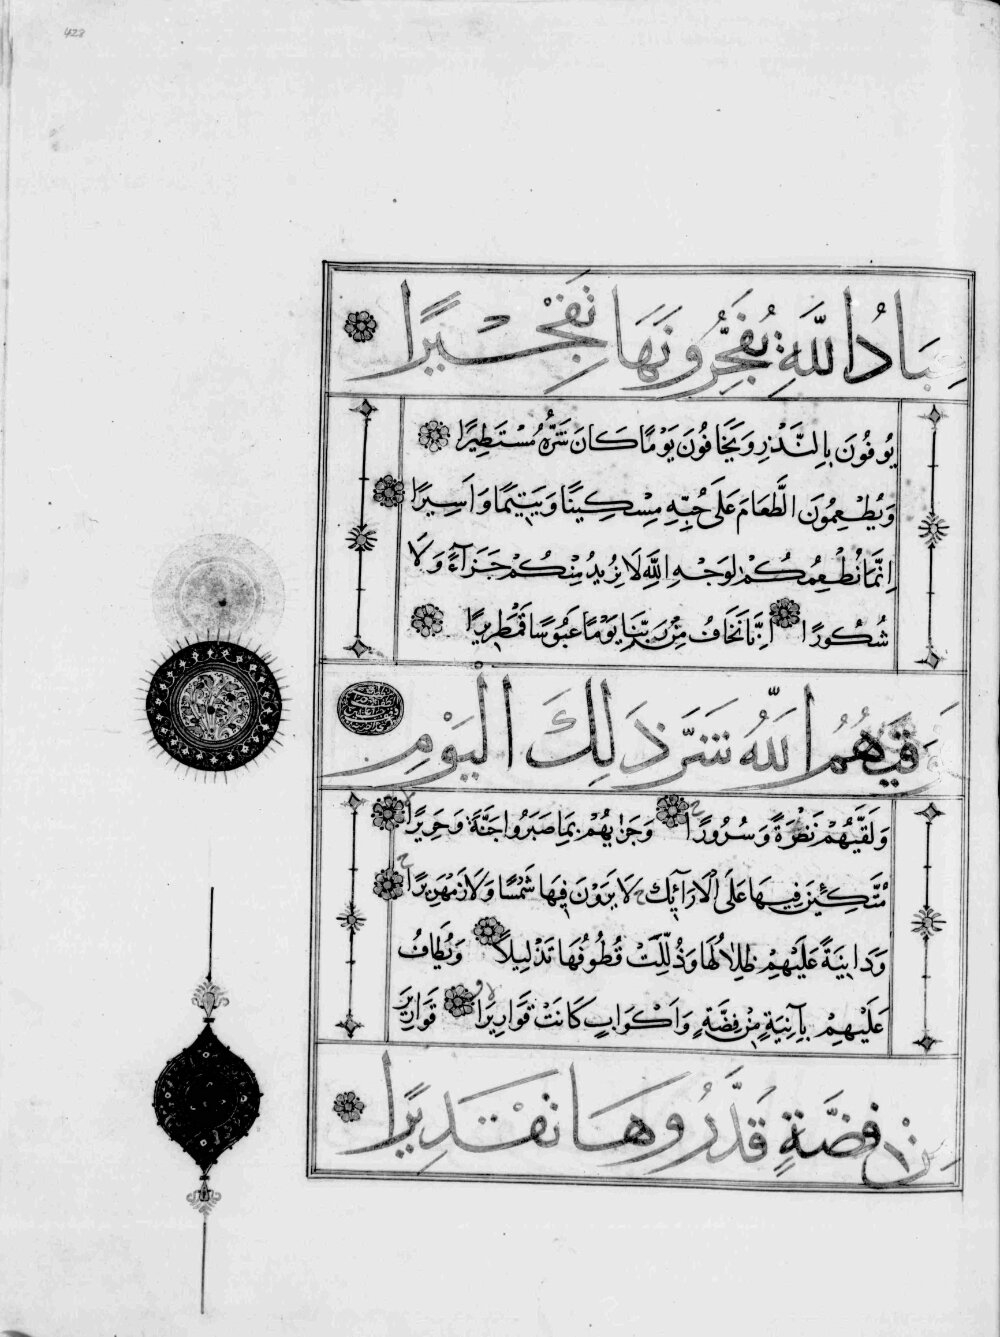 عِبَادُ اللَّهِ يُفَجِّرُونَهَا تَفْجِيرًا
يُوفُونَ بِالنَّذْرِ وَيَخَافُونَ يَوْمًا كَانَ شَرُّهُ مُسْتَطِيرًا
وَيُطْعِمُونَ الطَّعَامَ عَلَى حُبِّهِ مِسْكِينًا وَيَتِيمًا وَاَسِيرًا
اِنَّمَا نُطْعِمُكُمْ لِوَجْهِ اللَّهِ لَا نُرِيدُ مِنْكُمْ جَزَآءً وَلَا
شُكُورًا اِنَّا نَخَافُ مِنْ رَبِّنَا يَوْمًا عَبُوسًا قَمْطَرِيرًا
فَوَقٰيهُمُ اللَّهُ شَرَّ ذَلِكَ الْيَوْمِ
وَلَقّٰيهُمْ نَضْرَةً وَسُرُورًا وَجَزٰيهُمْ بِمَا صَبَرُوا جَنَّةً وَحَرِيرًا
مُتَّكِئِينَ فِيهَا عَلَى الْاَرَآئِكِ لَا يَرَوْنَ فِيهَا شَمْسًا وَلَا زَمْهَرِيرًا
وَدَانِيَةً عَلَيْهِمْ ظِلَالُهَا وَذُلِّلَتْ قُطُوفُهَا تَذْلِيلًا وَيُطَافُ
عَلَيْهِمْ بِآنِيَةٍ مِنْ فِضَّةٍ وَاَكْوَابٍ كَانَتْ قَوَارِيرَا قَوَارِيرَ
مِنْ فِضَّةٍ قَدَّرُوهَا تَقْدِيرًا